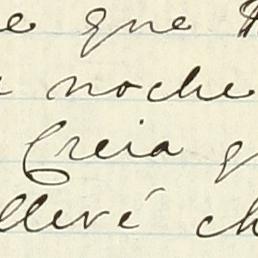 e que
noche
Creia q
llevé ch